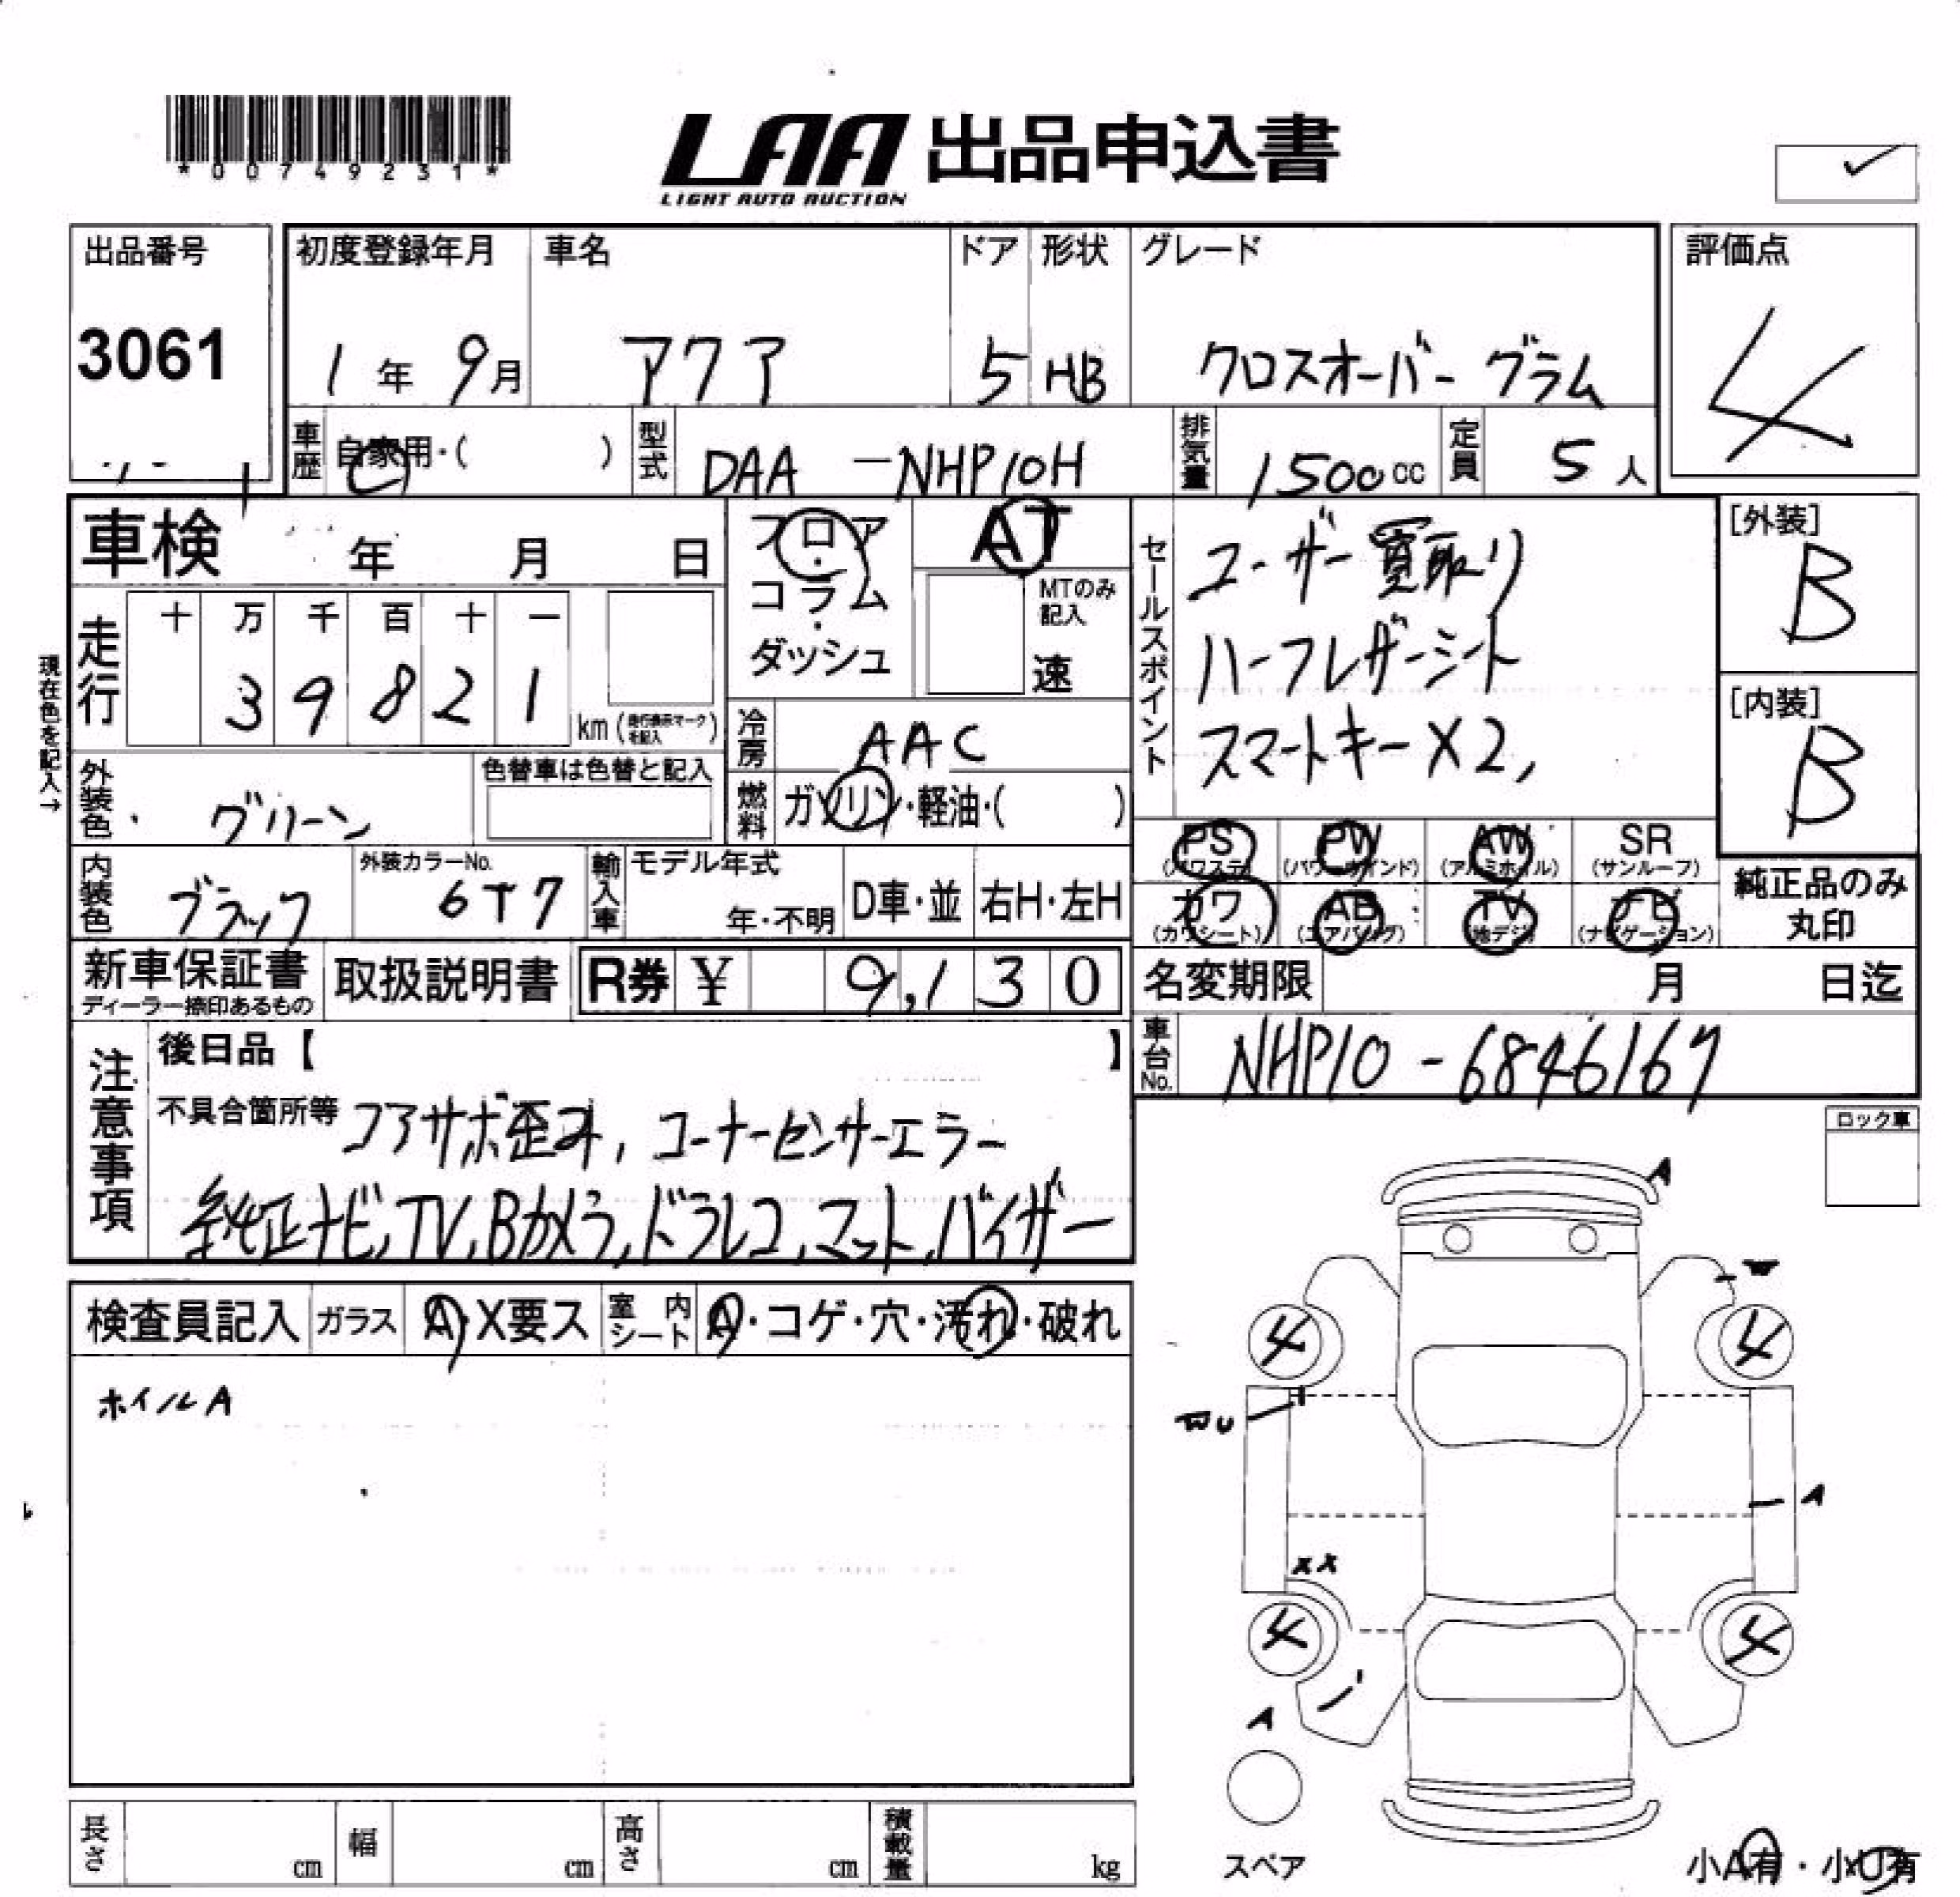 *00749231*
LAA 出品申込書
LIGHT AUTO AUCTION
出品番号
3061
初度登録年月
1年 9月
車名
アクア
ドア
5
形状
HB
グレード
クロスオーバー グラム
評価点
4
車歴
自家用・( )
型式
DAA -NHP10H
排気量
1500cc
定員
5人
車検 年 月 日
フロア・コラム・ダッシュ
AT
MTのみ記入
速
セールスポイント
ユーザー買取り
ハーフレザーシート
スマートキー×2,
[外装]
B
[内装]
B
現在色を記入→
走行
十 万 千 百 十 一
3 9 8 2 1
km(走行表示マークを記入)
冷房
AAC
燃料
ガソリン・軽油・( )
外装色
グリーン
色替車は色替と記入
内装色
ブラック
外装カラーNo.
6T7
輸入車
モデル年式
年・不明
D車・並
右H・左H
PS (パワステ)
PW (パワーウインド)
AW (アルミホイル)
SR (サンルーフ)
カワ (カワシート)
AB (エアバッグ)
TV (地デジ)
ナビ (ナビゲーション)
純正品のみ丸印
新車保証書
ディーラー捺印あるもの
取扱説明書
R券 ¥ 9,130
名変期限 月 日迄
車台No.
NHP10-6846167
注意事項
後日品【 】
不具合箇所等 コアサポ歪み, コーナーセンサーエラー
純正ナビ, TV, Bカメラ, ドラレコ, マット, バイザー
ロック車
検査員記入
ガラス A・X要ス
室内シート A・コゲ・穴・汚れ・破れ
ホイルA
A
W
4 4
WU
A
XX
4 4
A
スペア
長さ cm
幅 cm
高さ cm
積載量 kg
小A有・小U有